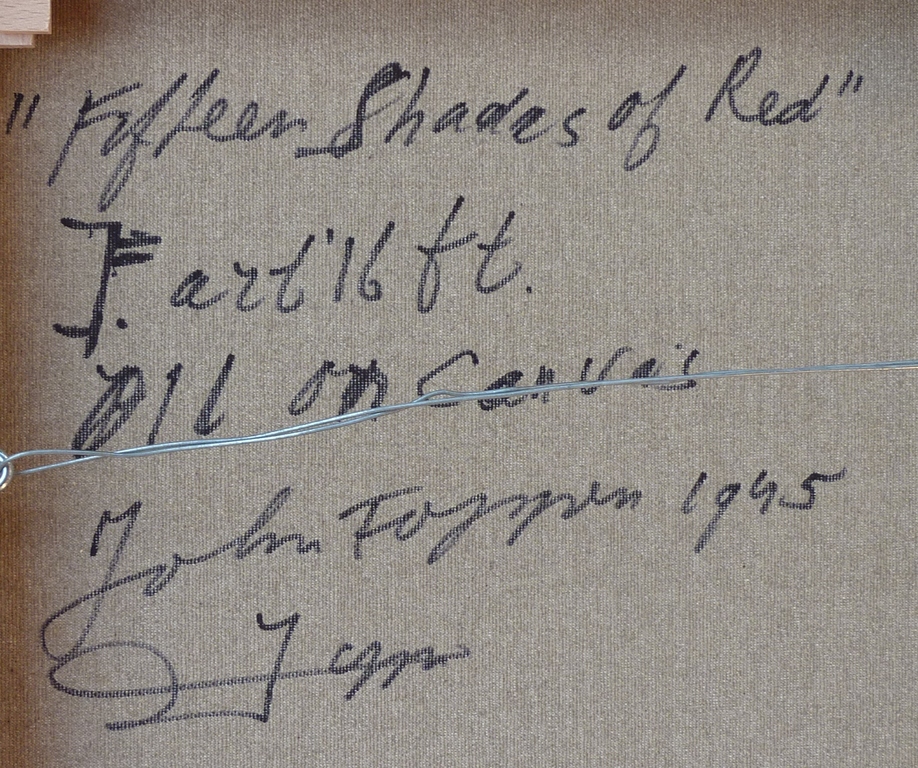 "Fifteen Shades of Red"
F. art '16 ft.
Oil on Canvas
John Foppen 1945